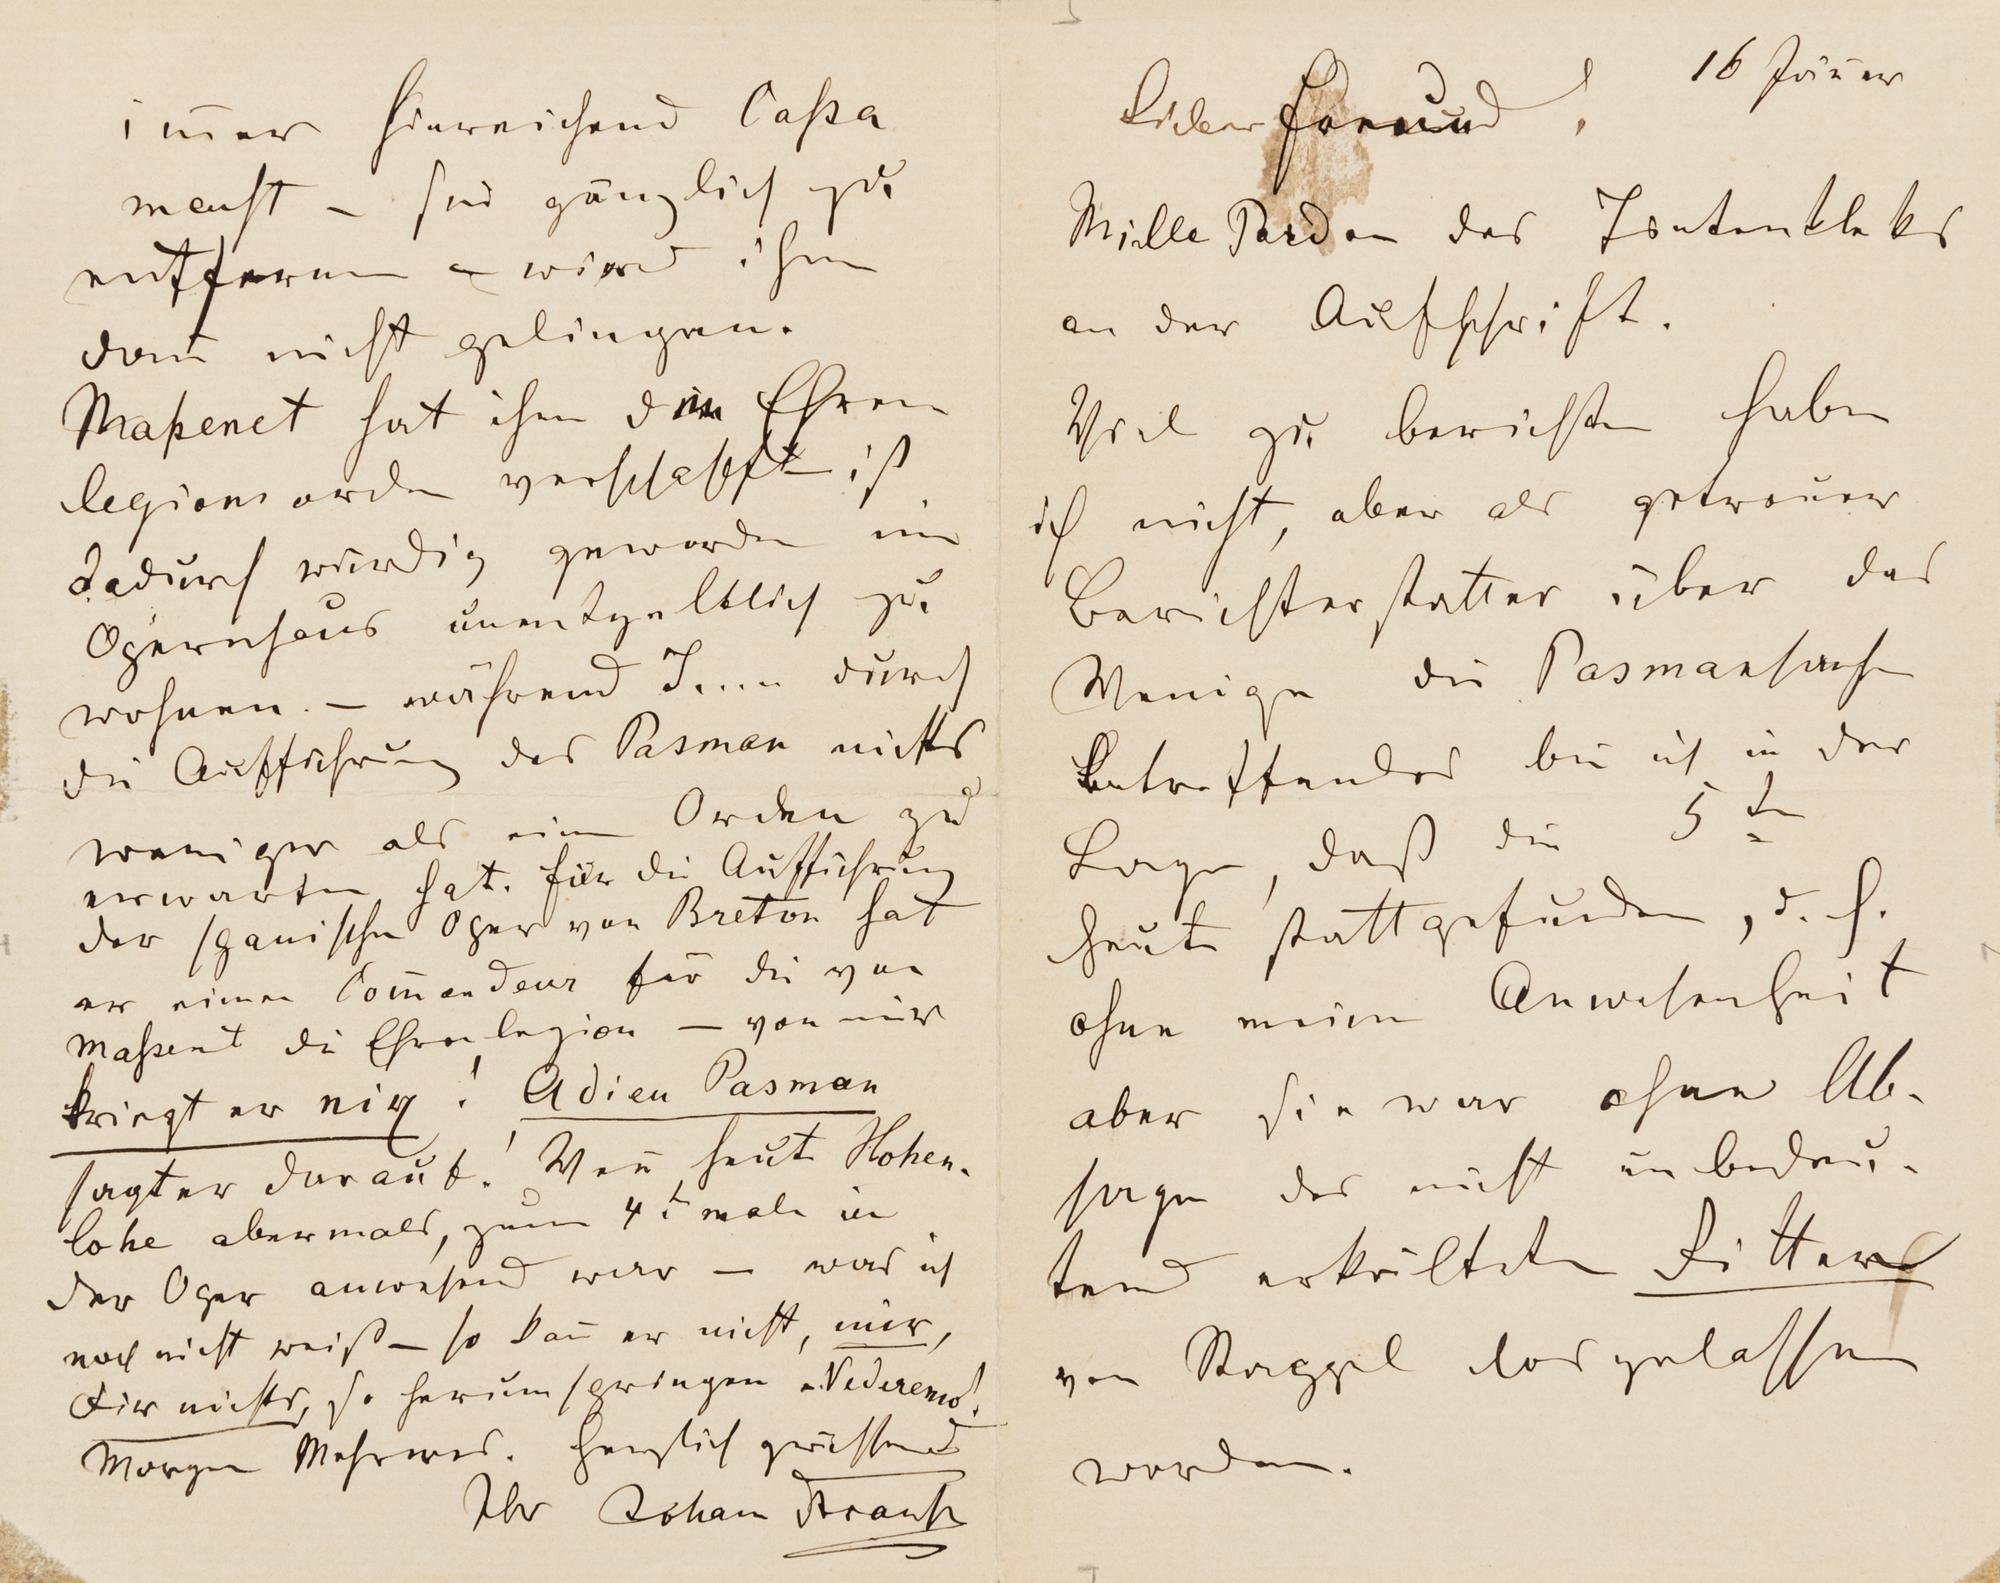 16 Jäner
Lieber Freund!
Mille Pardon des Tintenkleks
an der Aufschrift.
Viel zu berichten habe
ich nicht, aber als getreuer
Berichterstatter über das
Wenige die Pasmansache
betreffendes bin ich in der
Lage, daß die 5te
heute stattgefunden, d. h.
ohne meine Anwesenheit
aber sie war ohne Ab-
sage des nicht unbedeu-
tend erkälteten Ritters
von Stappel losgelassen
worden.
imer hinreichend Cassa
macht – sie gänzlich zu
entfernen – wird ihm
dan nicht gelingen.
Massenet hat ihm den Ehren
legions orden verschafft ist
dadurch würdig geworden im
Opernhaus unentgeltlich zu
wohnen. – während J.... durch
die Aufführung des Pasman nichts
weniger als einen Orden zu
erwarten hat. für die Aufführung
der spanischen Oper von Breton hat
er einen Comandeur für die von
Massenet die Ehrenlegion – von mir
kriegt er nix! Adieu Pasman
sagt er darauf! Wen heute Hohen-
lohe abermals, zum 4t male in
der Oper anwesend war – was ich
noch nicht weiß – so kan er nicht, mir,
für nichts, so herumspringen. Vederemo!
Morgen Mehreres. Herzlich grüssend
Ihr Johann Strauss